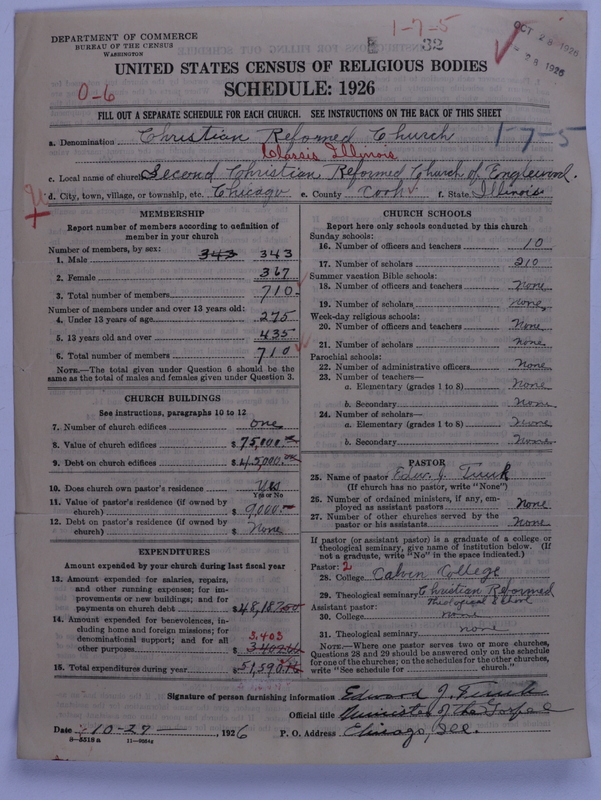 DEPARTMENT OF COMMERCE
BUREAU OF THE CENSUS
WASHINGTON
1-7-5
32
OCT 28 1926
28 1926
UNITED STATES CENSUS OF RELIGIOUS BODIES
SCHEDULE: 1926
0-6
FILL OUT A SEPARATE SCHEDULE FOR EACH CHURCH. SEE INSTRUCTIONS ON THE BACK OF THIS SHEET
a. Denomination Christian Reformed Church
1-7-5
Classis Illinois
c. Local name of church Second Christian Reformed Church of Englewood.
d. City, town, village, or township, etc. Chicago e. County Cook f. State Illinois
MEMBERSHIP
Report number of members according to definition of
member in your church
Number of members, by sex:
1. Male 343 343
2. Female 367
3. Total number of members 710
Number of members under and over 13 years old:
4. Under 13 years of age 275
5. 13 years old and over 435
6. Total number of members 710
NOTE.—The total given under Question 6 should be the
same as the total of males and females given under Question 3.
CHURCH BUILDINGS
See instructions, paragraphs 10 to 12
7. Number of church edifices one
8. Value of church edifices $ 75,000.
9. Debt on church edifices $ 45,000.
10. Does church own pastor's residence Yes
Yes or No
11. Value of pastor's residence (if owned by
church) $ 9,000.—
12. Debt on pastor's residence (if owned by
church) $ None
EXPENDITURES
Amount expended by your church during last fiscal year
13. Amount expended for salaries, repairs,
and other running expenses; for im-
provements or new buildings; and for
payments on church debt $ 48,187
14. Amount expended for benevolences, in-
cluding home and foreign missions; for
denominational support; and for all
3,403
other purposes $
15. Total expenditures during year $ 51,590
CHURCH SCHOOLS
Report here only schools conducted by this church
Sunday schools:
16. Number of officers and teachers 10
17. Number of scholars 210
Summer vacation Bible schools:
18. Number of officers and teachers None
19. Number of scholars None
Week-day religious schools:
20. Number of officers and teachers None
21. Number of scholars None
Parochial schools:
22. Number of administrative officers None
23. Number of teachers—
a. Elementary (grades 1 to 8) None
b. Secondary None
24. Number of scholars—
a. Elementary (grades 1 to 8) None
b. Secondary None
PASTOR
25. Name of pastor Edw. J. Tuuk
(If church has no pastor, write "None")
26. Number of ordained ministers, if any, em-
ployed as assistant pastors None
27. Number of other churches served by the
pastor or his assistants None
If pastor (or assistant pastor) is a graduate of a college or
theological seminary, give name of institution below. (If
not a graduate, write "No" in the space indicated.)
Pastor: 2
28. College Calvin College
29. Theological seminary Christian Reformed
Theological School
Assistant pastor:
30. College none
31. Theological seminary none
NOTE.—Where one pastor serves two or more churches,
Questions 28 and 29 should be answered only on the schedule
for one of the churches; on the schedules for the other churches,
write "See schedule for church."
Signature of person furnishing information Edward J. Tuuk
Official title Minister of the Gospel
Date 10-27-, 1926 P. O. Address Chicago, Ill.
8-5518a 11-9904